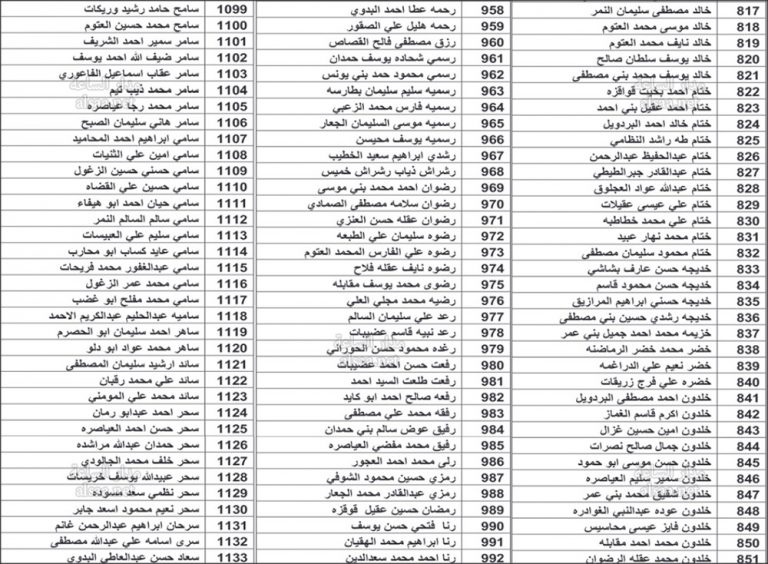 817 خالد مصطفى سليمان النمر
818 خالد موسى محمد العتوم
819 خالد نايف محمد العتوم
820 خالد يوسف سلطان صالح
821 خالد يوسف محمد بني مصطفى
822 ختام احمد بخيت قواقزه
823 ختام احمد عقيل بني احمد
824 ختام خالد احمد البردويل
825 ختام طه راشد النظامي
826 ختام عبدالحفيظ عبدالرحمن
827 ختام عبدالقادر جبرالطيطي
828 ختام عبدالله عواد العجلوق
829 ختام علي عيسى عقيلات
830 ختام علي محمد خطاطبه
831 ختام محمد نهار عبيد
832 ختام محمود سليمان مصطفى
833 خديجه حسن عارف بشاشي
834 خديجه حسن محمود قاسم
835 خديجه حسني ابراهيم المرازيق
836 خديجه رشدي حسين بني مصطفى
837 خزيمه محمد احمد جميل بني عمر
838 خضر محمد خضر الرماضنه
839 خضر نعيم علي الدراغمه
840 خضره علي فرج زريقات
841 خلدون احمد مصطفى البردويل
842 خلدون اكرم قاسم الغماز
843 خلدون امين حسين غزال
844 خلدون جمال صالح نصرات
845 خلدون حسن موسى ابو حمود
846 خلدون سمير سليم العياصره
847 خلدون شفيق محمد بني عمر
848 خلدون عوده عبدالنبي الغوادره
849 خلدون فايز عيسى محاسيس
850 خلدون محمد احمد مقابله
851 خلدون محمد عقله الرضوان
958 رحمه عطا احمد البدوي
959 رحمه هليل علي الصقور
960 رزق مصطفى فالح القصاص
961 رسمي شحاده يوسف حمدان
962 رسمي محمود حمد بني يونس
963 رسميه سليم سليمان بطارسه
964 رسميه فارس محمد الزعبي
965 رسميه موسى السليمان الجعار
966 رسميه يوسف محيسن
967 رشدي ابراهيم سعيد الخطيب
968 رشراش ذياب رشراش خميس
969 رضوان احمد محمد بني موسى
970 رضوان سلامه مصطفى الصمادي
971 رضوان عقله حسن العنزي
972 رضوه سليمان علي الطبعه
973 رضوه علي الفارس المحمد العتوم
974 رضوه نايف عقله فلاح
975 رضوى محمد يوسف مقابله
976 رضيه محمد مجلي العلي
977 رعد علي سليمان السالم
978 رعد نبيه قاسم عضيبات
979 رغده محمود حسن الحوراني
980 رفعت حسن احمد عضيبات
981 رفعت طلعت السيد احمد
982 رفعه صالح احمد ابو كايد
983 رفقه محمد علي مصطفى
984 رفيق عوض سالم بني حمدان
985 رفيق محمد مفضي العياصره
986 رلى محمد احمد العجور
987 رمزي حسين محمود الشوفي
988 رمزي عبدالقادر محمد الجعار
989 رمضان حسين عقيل قوقزه
990 رنا فتحي حسن يوسف
991 رنا ابراهيم محمد الهقيان
992 رنا احمد محمد سعدالدين
1099 سامح حامد رشيد وريكات
1100 سامح محمد حسين العتوم
1101 سامر سمير احمد الشريف
1102 سامر ضيف الله احمد يوسف
1103 سامر عقاب اسماعيل الفاعوري
1104 سامر محمد ذيب تيم
1105 سامر محمد رجا عياصره
1106 سامر هاني سليمان الصبح
1107 سامي ابراهيم احمد المحاميد
1108 سامي امين علي الثنيات
1109 سامي حسني حسين الزغول
1110 سامي حسين علي القضاه
1111 سامي حيان احمد ابو هيفاء
1112 سامي سالم السالم النمر
1113 سامي سليم علي العبيسات
1114 سامي عايد كساب ابو محارب
1115 سامي عبدالغفور محمد فريحات
1116 سامي محمد عمر الزغول
1117 سامي محمد مفلح ابو غضب
1118 ساميه عبدالحليم عبدالكريم الاحمد
1119 ساهر احمد سليمان ابو الحصرم
1120 ساهر محمد عواد ابو دلو
1121 سائد ارشيد سليمان المصطفى
1122 سائد علي محمد رقبان
1123 سائد محمد علي المومني
1124 سحر احمد عبدابو رمان
1125 سحر حسن احمد العياصره
1126 سحر حمدان عبدالله مراشده
1127 سحر خلف محمد الجالودي
1128 سحر عبيدالله يوسف خريسات
1129 سحر نظمي سعد مسوده
1130 سحر نعيم محمود اسعد جابر
1131 سرحان ابراهيم عبدالرحمن غانم
1132 سرى اسامه علي عبدالله مصطفى
1133 سعاد حسن عبدالعاطي البدوي